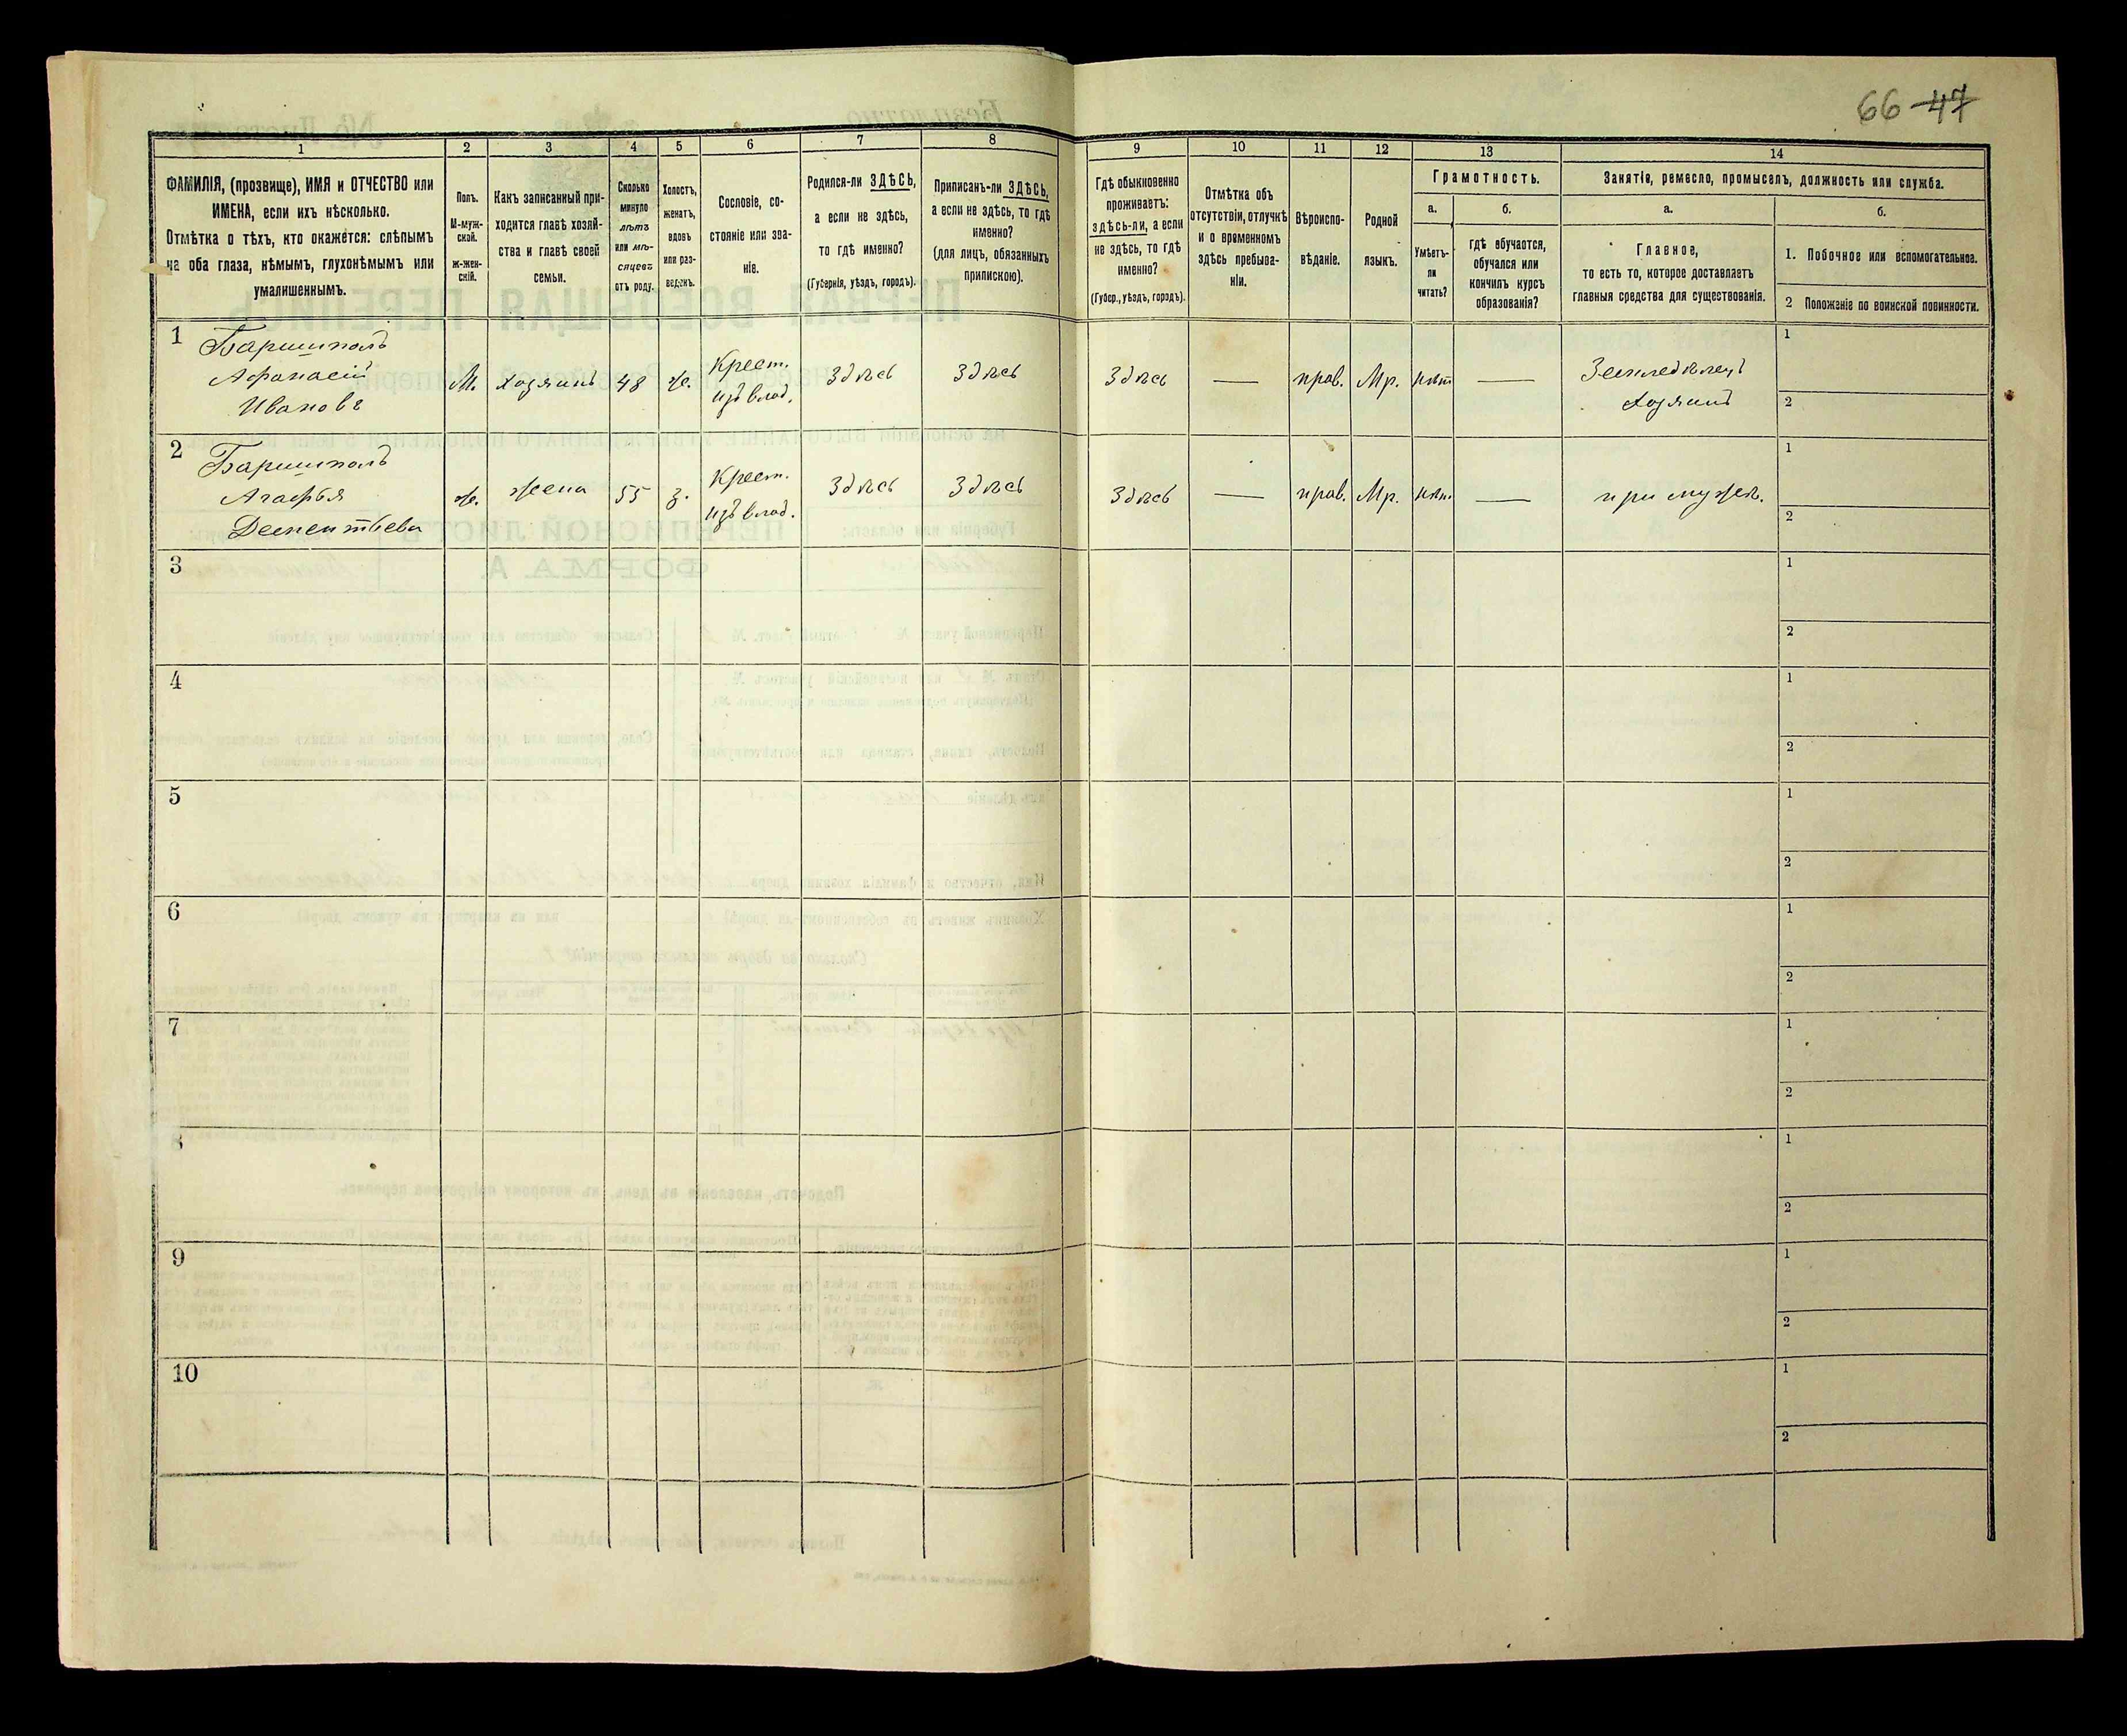 66 47
1
2
3
4
5
6
7
8
9
10
11
12
13
14
ФАМИЛІЯ, (прозвище), ИМЯ и ОТЧЕСТВО или
ИМЕНА, если ихъ нѣсколько.
Отмѣтка о тѣхъ, кто окажется: слѣпымъ
на оба глаза, нѣмымъ, глухонѣмымъ или
умалишеннымъ.
Полъ.
М-муж-
ской.
ж-жен-
скій.
Какъ записанный при-
ходится главѣ хозяй-
ства и главѣ своей
семьи.
Сколько
минуло
лѣтъ
или мѣ-
сяцевъ
отъ роду.
Холостъ,
женатъ,
вдовъ
или раз-
веденъ.
Сословіе, со-
стояніе или зва-
ніе.
Родился-ли ЗДѢСЬ,
а если не здѣсь,
то гдѣ именно?
(Губернія, уѣздъ, городъ).
Приписанъ-ли ЗДѢСЬ,
а если не здѣсь, то гдѣ
именно?
(для лицъ, обязанныхъ
припискою).
Гдѣ обыкновенно
проживаетъ:
здѣсь-ли, а если
не здѣсь, то гдѣ
именно?
(Губер., уѣздъ, городъ).
Отмѣтка объ
отсутствіи, отлучкѣ
и о временномъ
здѣсь пребыва-
ніи.
Вѣроиспо-
вѣданіе.
Родной
языкъ.
Грамотность.
а.
Умѣетъ-
ли
читать?
б.
гдѣ обучается,
обучался или
кончилъ курсъ
образованія?
Занятіе, ремесло, промыселъ, должность или служба.
а.
Главное,
то есть то, которое доставляетъ
главныя средства для существованія.
б.
1. Побочное или вспомогательное.
2 Положеніе по воинской повинности.
1
Баришполъ
Афанасій
Ивановъ
М.
хозяинъ
48
ж.
Крест.
изъ влад.
Здѣсь
Здѣсь
Здѣсь
—
прав.
Мр.
нѣт
—
Земледѣлецъ
хозяинъ
1
2
2
Баришполъ
Агафья
Дементьева
ж.
жена
55
з.
Крест.
изъ влад.
Здѣсь
Здѣсь
Здѣсь
—
прав.
Мр.
нѣт.
—
при мужѣ.
1
2
3
1
2
4
1
2
5
1
2
6
1
2
7
1
2
8
1
2
9
1
2
10
1
2